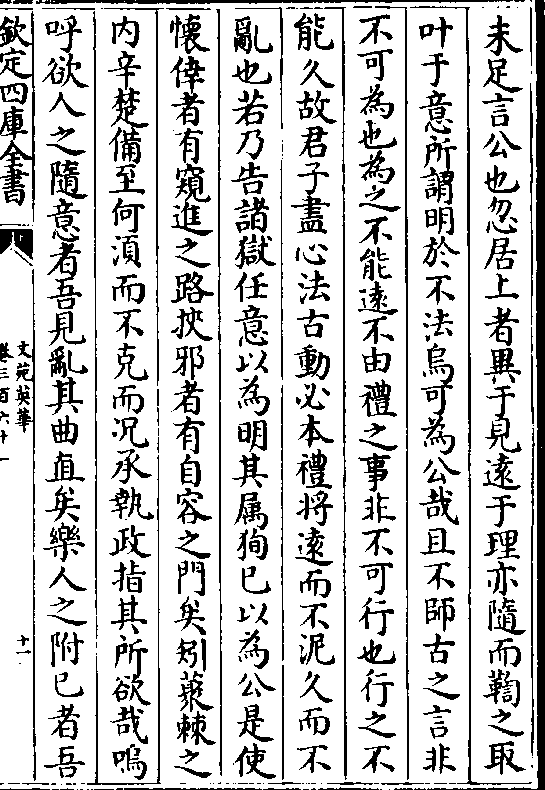 未足言公也忽居上者異于見遠于理亦隨而鞫之取
叶于意所謂明於不法烏可為公哉且不師古之言非
不可為也為之不能遠不由禮之事非不可行也行之不
能久故君子盡心法古動必本禮將遠而不泥久而不
亂也若乃告諸獄任意以為明其属狥已以為公是使
懐倖者有窺進之路挾邪者有自容之門矣矧䕺棘之
内辛楚備至何湏而不克而况承執政指其所欲哉嗚
呼欲人之隨意者吾見亂其曲直矣樂人之附已者吾
欽定四庫全書
文苑英華
卷三百六十一
十一